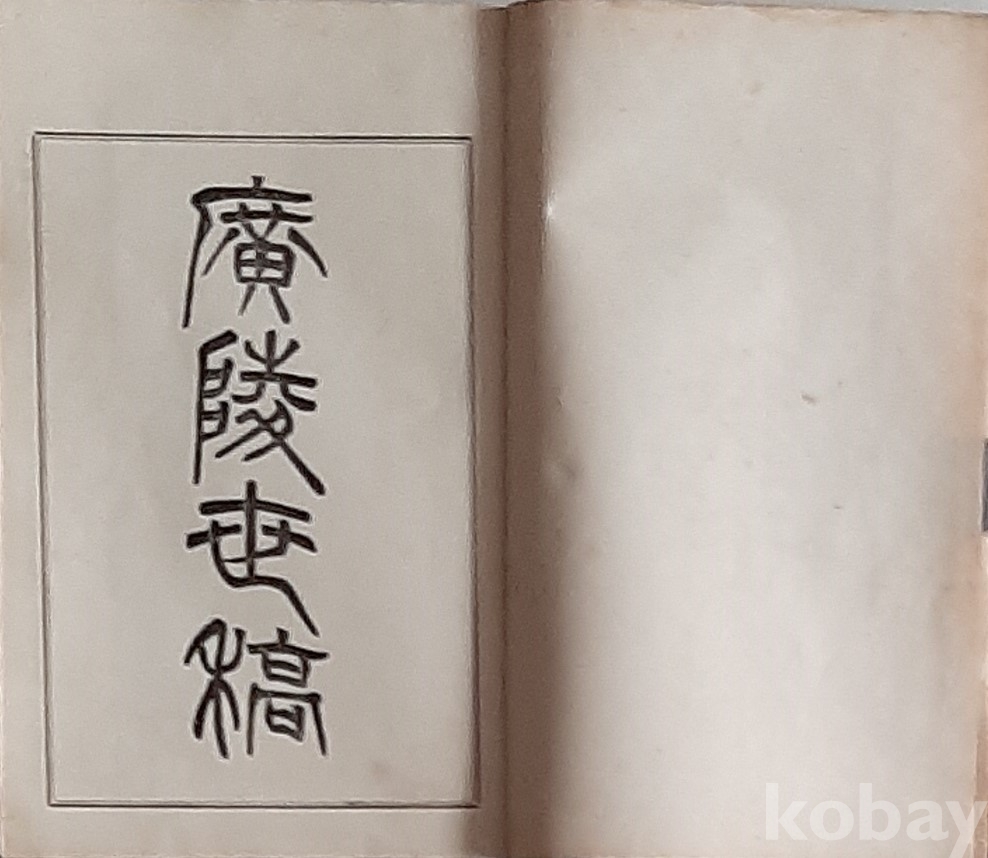 廣陵世稿
kobay